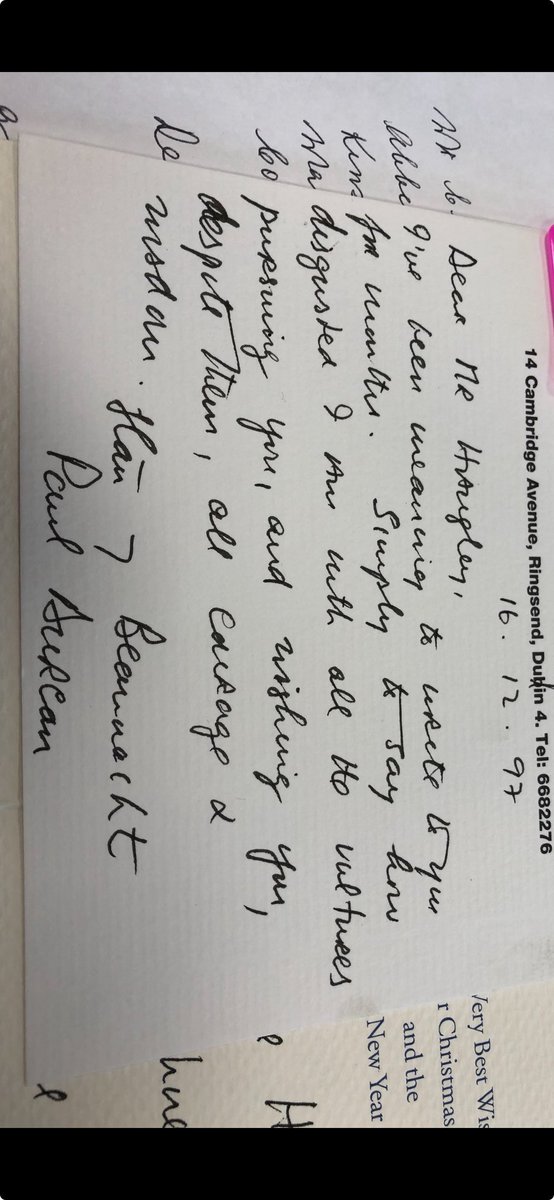 14 Cambridge Avenue, Ringsend, Dublin 4. Tel: 6682276
16.12.97
Dear Mr Haughey,
I've been meaning to write to you
for months. Simply to say how
disgusted I am with all the vultures
pursuing you, and wishing you,
despite them, all courage &
wisdom. Slán 7 Beannacht
Paul Durcan
Very Best Wis
r Christmas
and the
New Year